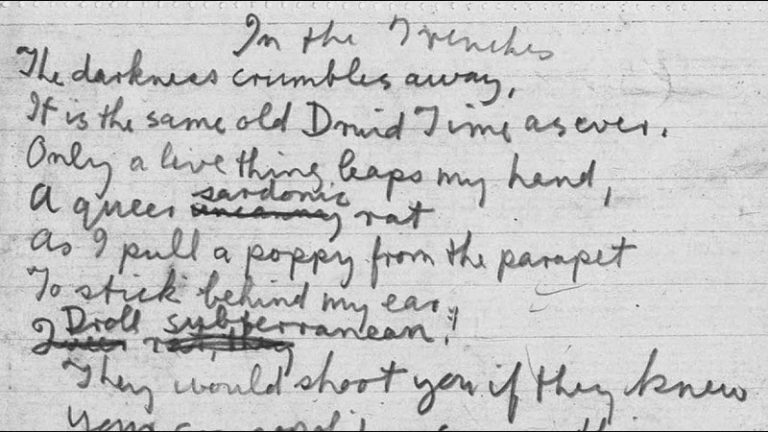 In the Trenches
The darkness crumbles away,
It is the same old Druid Time as ever.
Only a live thing leaps my hand,
A queer sardonic rat
As I pull a poppy from the parapet
To stick behind my ear.
Droll subterranean!
They would shoot you if they knew
Your